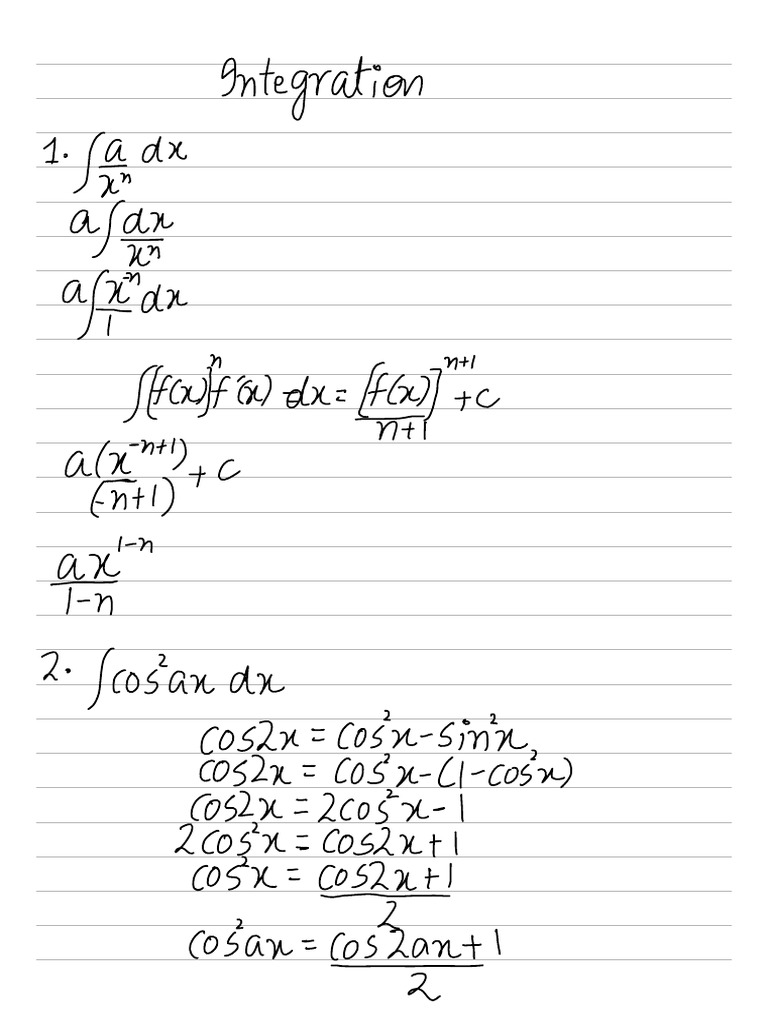 Integration
1. ∫ a/xⁿ dx
a∫ dx/xⁿ
a∫ x⁻ⁿ/1 dx
∫[f(x)]ⁿ f'(x) dx = [f(x)]ⁿ⁺¹/n+1 + c
a(x⁻ⁿ⁺¹)/(-n+1) + c
ax¹⁻ⁿ/1-n
2. ∫cos²ax dx
cos2x = cos²x - sin²x
cos2x = cos²x - (1-cos²x)
cos2x = 2cos²x - 1
2cos²x = cos2x + 1
cos²x = cos2x+1/2
cos²ax = cos2ax+1/2